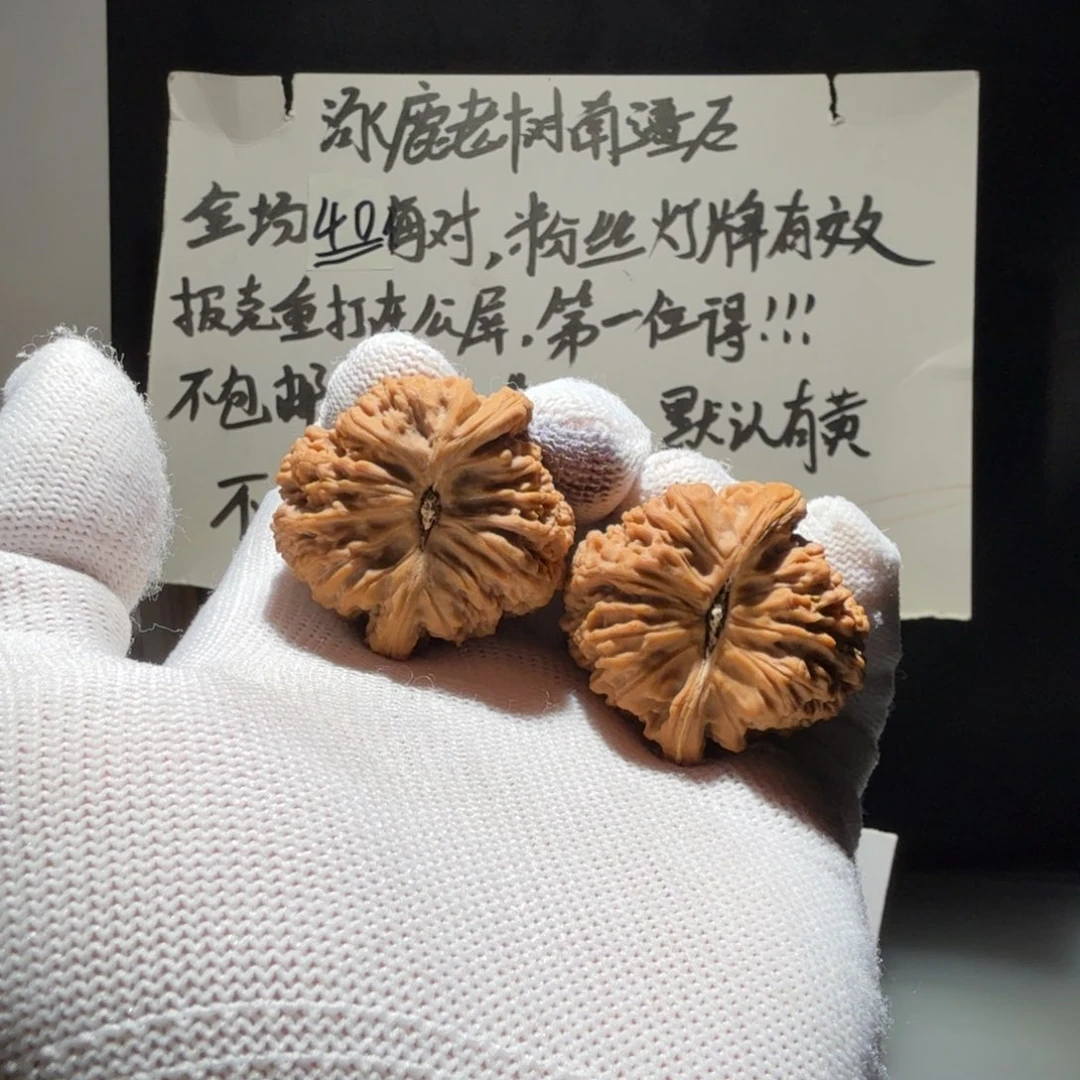 涿鹿老树南疆石
全场40每对,粉丝灯牌有效
报克重打在公屏.第一位得!!!
不包邮 默认有黄
不